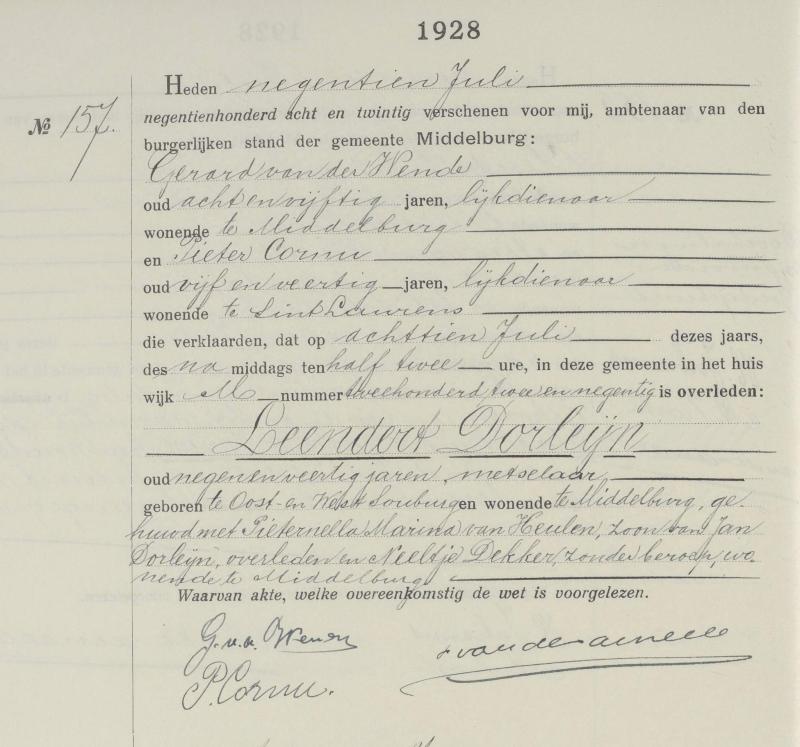 1928
Heden negentien Juli
№ 157.
negentienhonderd acht en twintig verschenen voor mij, ambtenaar van den
burgerlijken stand der gemeente Middelburg:
Gerard van der Wende
oud acht en vijftig jaren, lijkdienaar
wonende te Middelburg
en Pieter Cornu
oud vijf en veertig jaren, lijkdienaar
wonende te Sint Laurens
die verklaarden, dat op achttien Juli dezes jaars,
des na middags ten half twee ure, in deze gemeente in het huis
wijk M nummer tweehonderd twee en negentig is overleden:
Leendert Dorleijn
oud negen en veertig jaren, metselaar,
geboren te Oost- en West Souburg en wonende te Middelburg, ge-
huwd met Pieternella Marina van Heulen, zoon van Jan
Dorleijn, overleden en Neeltje Dekker, zonder beroep, wo-
nende te Middelburg
Waarvan akte, welke overeenkomstig de wet is voorgelezen.
G. v. d. Wende
P. Cornu.